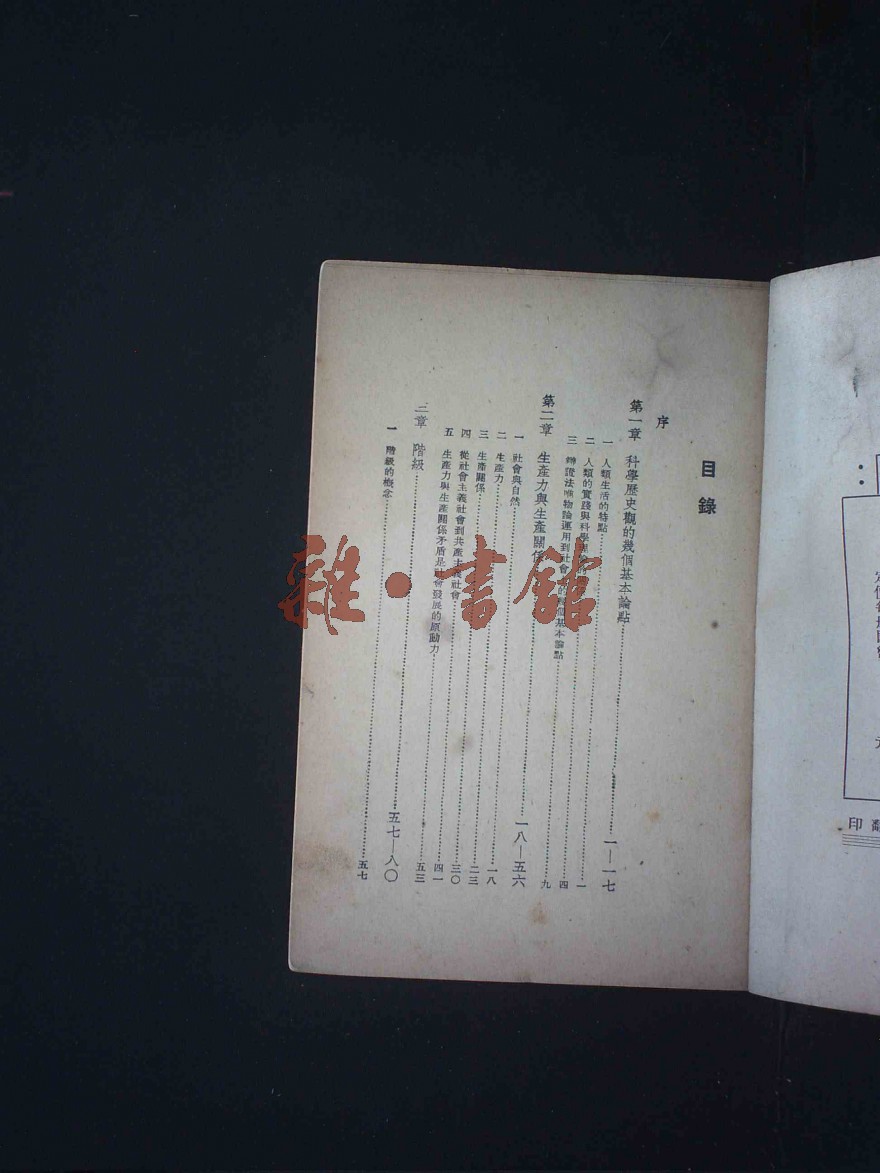 目錄
序
第一章 科學歷史觀的幾個基本論點……一—一七
一 人類生活的特點……一
二 人類的實踐與科學……四
三 辯證法唯物論運用到社會……基本論點……九
第二章 生產力與生產關係……一八—五六
一 社會與自然……一八
二 生產力……二三
三 生產關係……三〇
四 從社會主義社會到共產主義社會……四一
五 生產力與生產關係矛盾是社會發展的原動力……五三
三章 階級……五七—八〇
一 階級的概念……五七
翻印
雜·書館